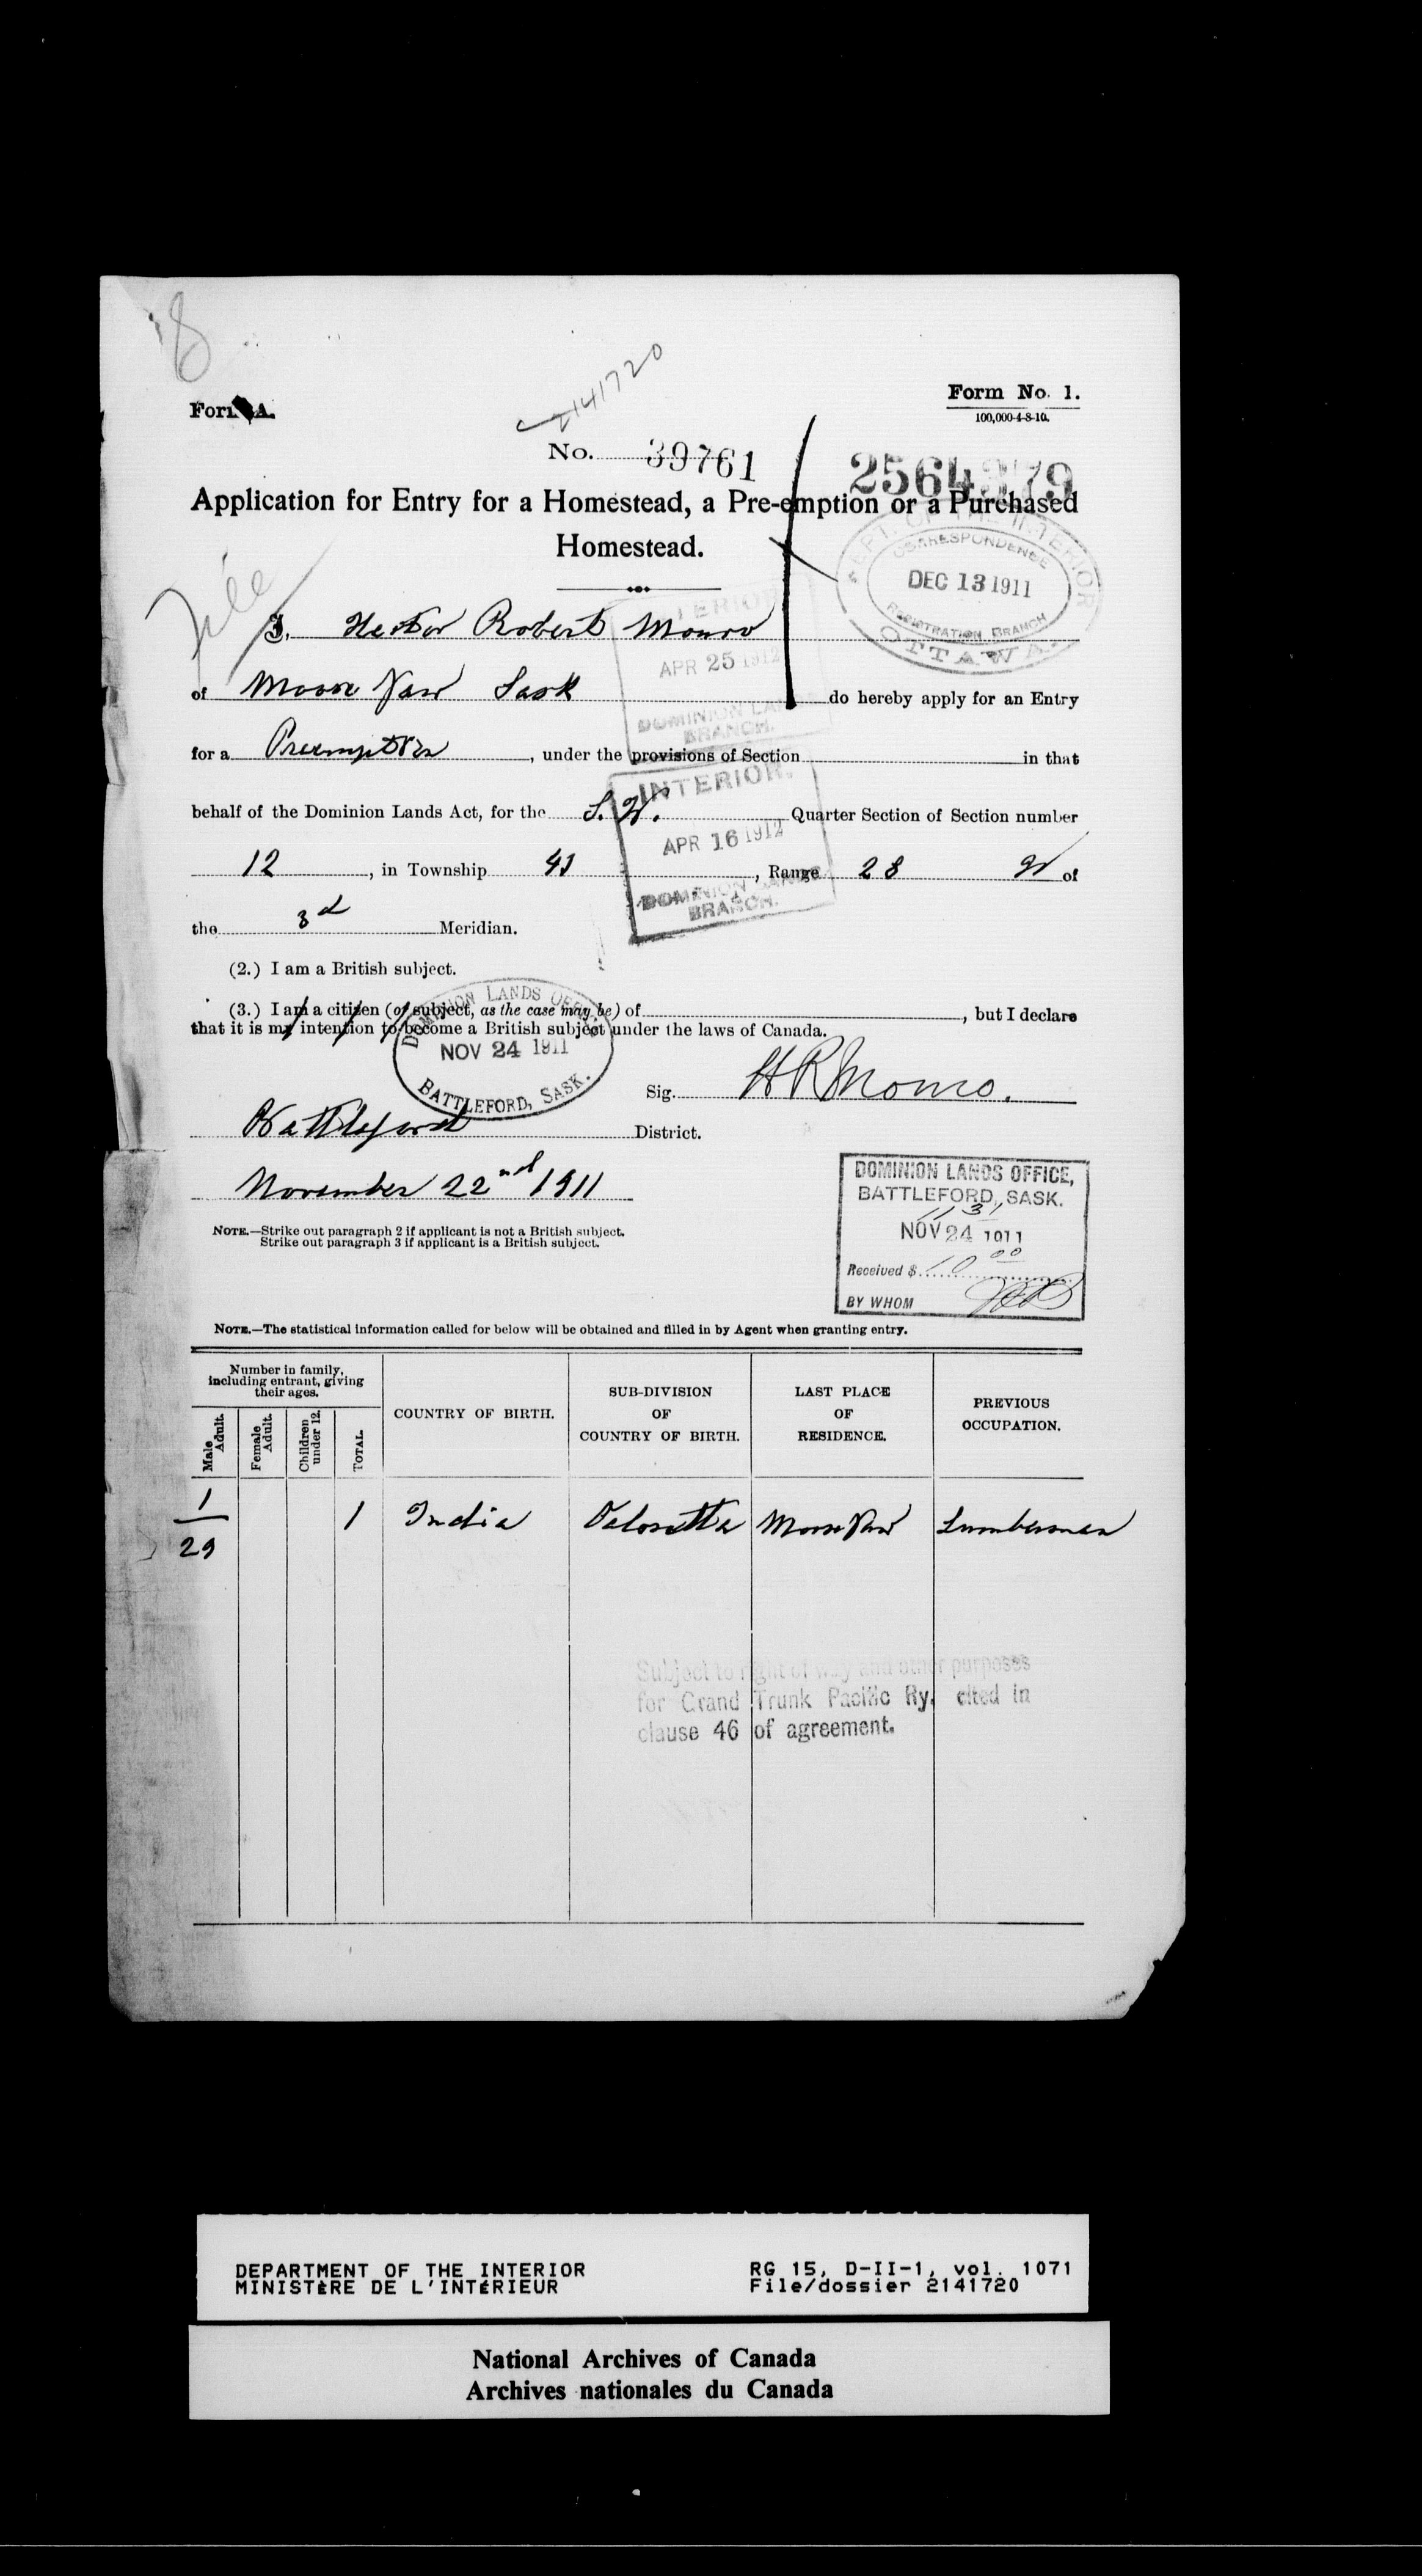 8
2141720
Form A.
Form No. 1.
100,000-4-8-10.
No. 39761
2564379
Application for Entry for a Homestead, a Pre-emption or a Purchased
Homestead.
DEPT. OF THE INTERIOR
CORRESPONDENCE
DEC 13 1911
REGISTRATION BRANCH
OTTAWA.
File
I, Hector Robert Monro
INTERIOR
APR 25 1912
DOMINION LANDS
BRANCH.
of Moose Jaw Sask do hereby apply for an Entry
for a Preemption, under the provisions of Section in that
behalf of the Dominion Lands Act, for the S. W. Quarter Section of Section number
INTERIOR.
APR 16 1912
DOMINION LANDS
BRANCH.
12, in Township 41, Range 28 W of
the 3d Meridian.
(2.) I am a British subject.
(3.) I am a citizen (or subject, as the case may be) of, but I declare
that it is my intention to become a British subject under the laws of Canada.
DOMINION LANDS OFFICE
NOV 24 1911
BATTLEFORD, SASK.
Sig. H R Monro.
Battleford District.
November 22nd 1911
NOTE.—Strike out paragraph 2 if applicant is not a British subject.
Strike out paragraph 3 if applicant is a British subject.
DOMINION LANDS OFFICE,
BATTLEFORD, SASK.
1131
NOV 24 1911
Received $ 10 00
BY WHOM
NOTE.—The statistical information called for below will be obtained and filled in by Agent when granting entry.
Number in family, including entrant, giving their ages.
Male Adult.
Female Adult.
Children under 12.
TOTAL.
COUNTRY OF BIRTH.
SUB-DIVISION OF COUNTRY OF BIRTH.
LAST PLACE OF RESIDENCE.
PREVIOUS OCCUPATION.
1 1 India Moose Jaw Lumberman
29
Subject to right of way and other purposes
for Grand Trunk Pacific Ry. cited in
clause 46 of agreement.
DEPARTMENT OF THE INTERIOR
MINISTÈRE DE L'INTÉRIEUR
RG 15, D-II-1, vol. 1071
File/dossier 2141720
National Archives of Canada
Archives nationales du Canada